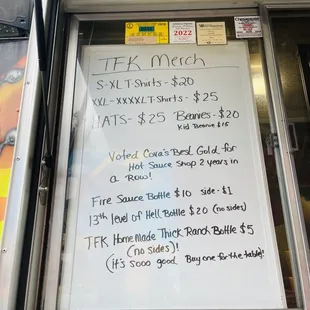 2022
TFK Merch
S-XL T-Shirts - $20
XXL-XXXXL T-Shirts - $25
HATS - $25 Beanies - $20
Kid Beanie $15
Voted Cora's Best Gold for
Hot Sauce Shop 2 years in
a Row!
Fire Sauce Bottle $10 side - $1
13th level of Hell Bottle $20 (no sides)
TFK HomeMade Thick Ranch Bottle $5
(no sides)!
(it's sooo good Buy one for the table)!